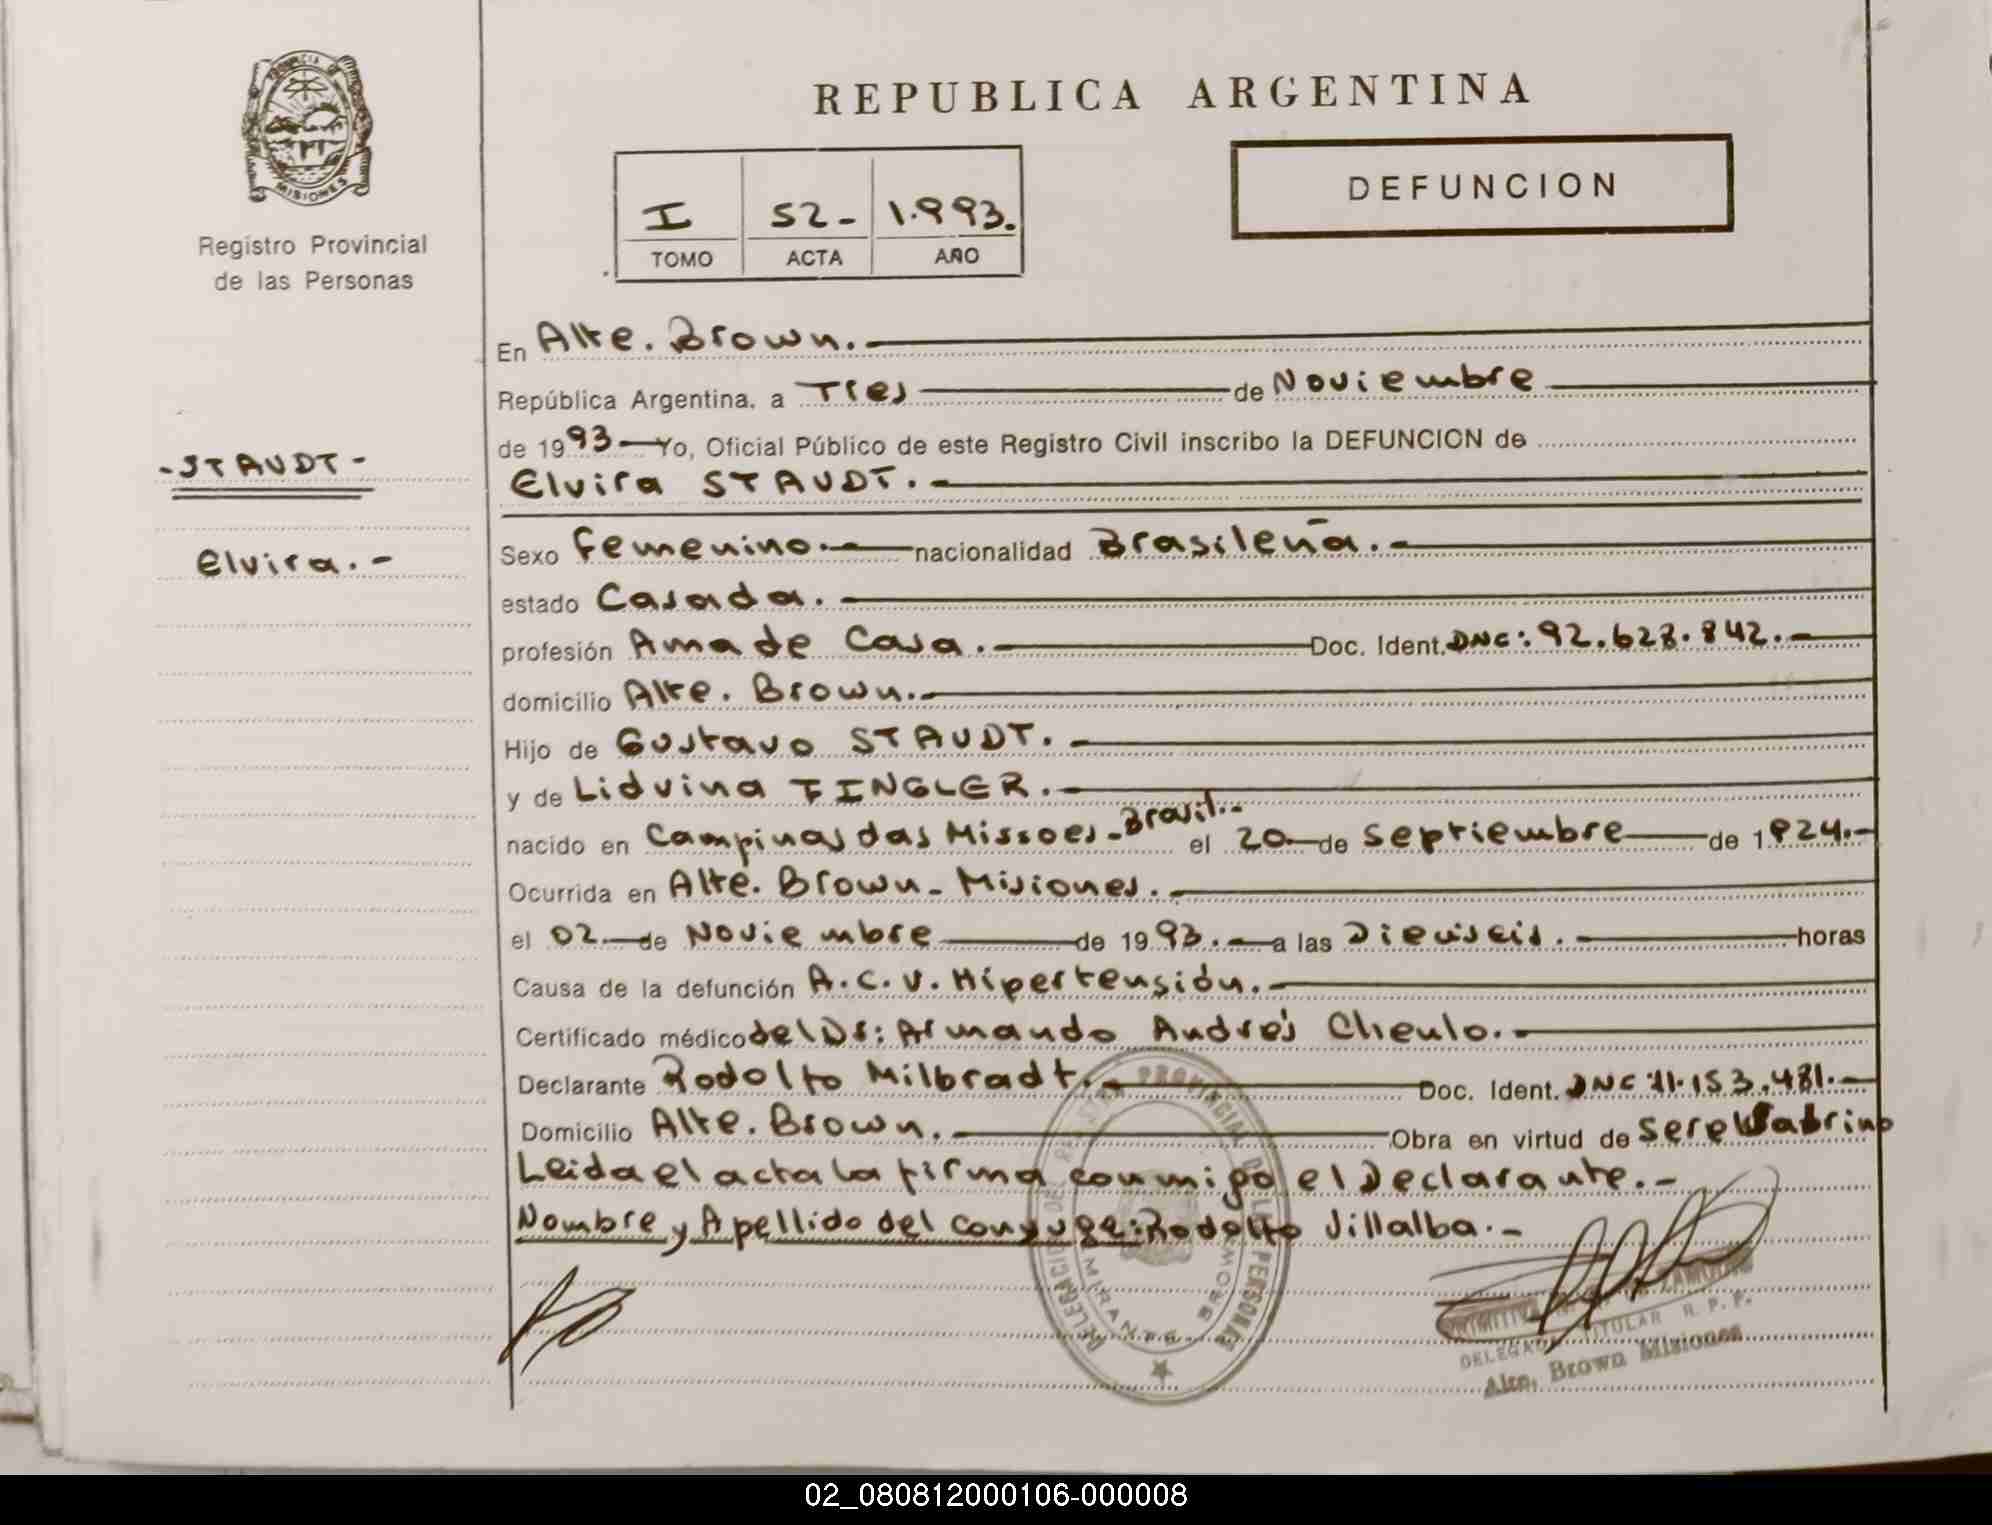 PROVINCIA DE
MISIONES
Registro Provincial
de las Personas
REPUBLICA ARGENTINA
I 52- 1.993.
TOMO ACTA AÑO
DEFUNCION
En Alte. Brown.
República Argentina, a Tres de Noviembre
de 1993 Yo, Oficial Público de este Registro Civil inscribo la DEFUNCION de
-STAUDT-
Elvira STAUDT.-
Elvira.-
Sexo Femenino.- nacionalidad Brasileña.-
estado Casada.
profesión Ama de Casa. Doc. Ident. DNC: 92.628.842.-
domicilio Alte. Brown.
Hijo de Gustavo STAUDT.
y de Lidvina TINGLER.
nacido en Campinas das Missoes-Brasil.- el 20 de Septiembre de 1924.-
Ocurrida en Alte. Brown- Misiones.
el 02 de Noviembre de 1993. a las Dieciseis. horas
Causa de la defunción A.C.V. Hipertensión.
Certificado médico del Dr: Armando Andrés Cheulo.
Declarante Rodolfo Milbradt. Doc. Ident. DNC 11.153.481.-
Domicilio Alte. Brown. Obra en virtud de ser el Sobrino
Leida el acta la firma conmigo el Declarante.-
Nombre y Apellido del conyuge: Rodolfo Villalba.-
DELEGACION DEL REGISTRO PROVINCIAL DE LAS PERSONAS
ALMIRANTE BROWN
DELEGADA TITULAR R. P. P.
Alte. Brown Misiones
02_080812000106-000008